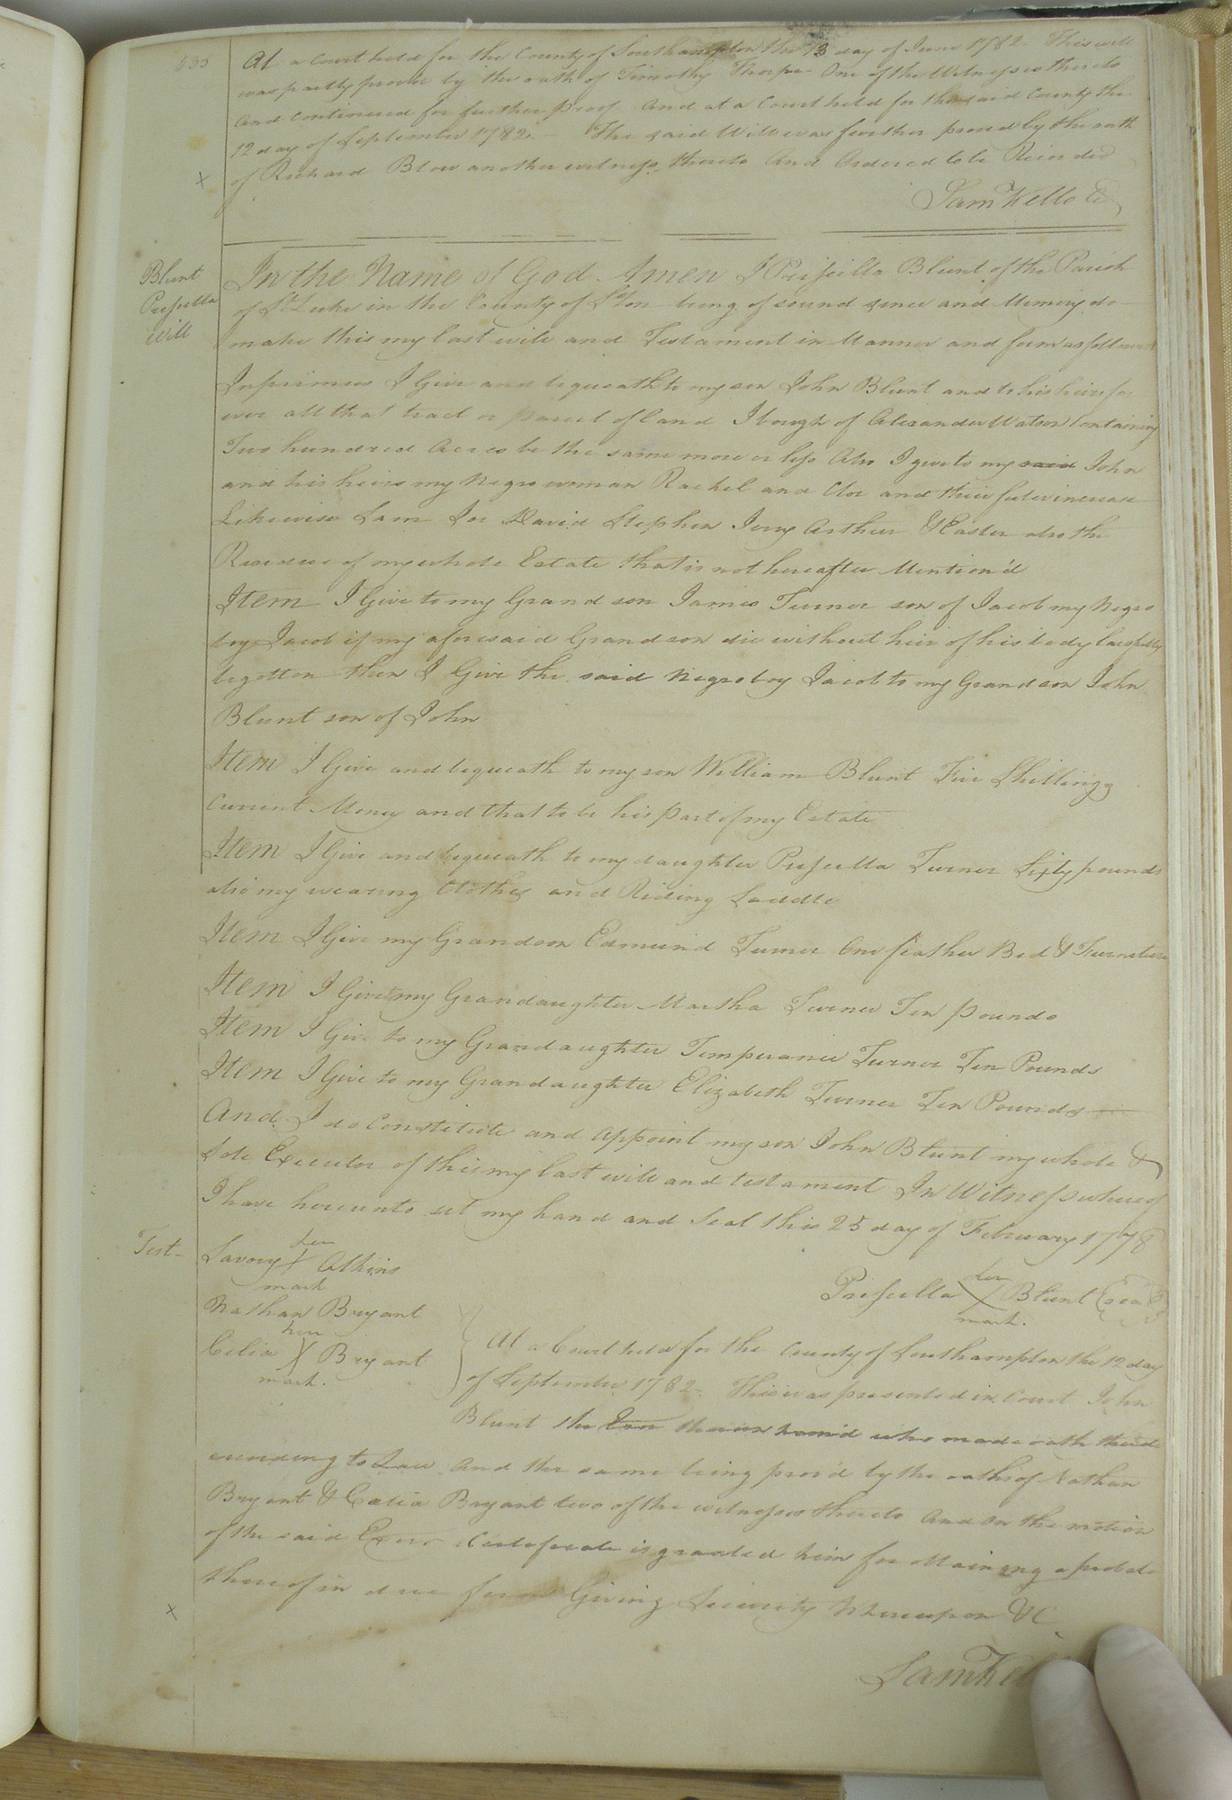 At a Court held for the County of Southampton the 13 day of June 1782 This will
was partly proved by the oath of Timothy Thorpe One of the Witnesses thereto
and Continued for further proof And at a Court held for the said County the
12 day of September 1782 - The said Will was further proved by the oath
of Richard Blow another witness thereto And Ordered to be Recorded
Sam Kello
Blunt
Prisscilla
Will
In the Name of God Amen I Prisscilla Blunt of the Parish
of St Luke in the County of Ston being of sound sence and Memory do
make this my last will and Testament in Manner and form as follows
Inprimes I Give and bequeath to my son John Blunt and to his heirs for
ever all that tract or parcel of land I bough of Alexander Watson Containing
Two hundred Acres be the same more or less Also I give to my said John
and his heirs my Negro woman Rachel and Clor and their future increase
Likewise Sam Jor David Stephen Jerry Arthur & Easter also the
Residue of my whole Estate that is not hereafter Mention'd
Item I Give to my Grand son James Turner son of Jacob my Negro
boy Jacob if my aforesaid Grandson die without heir of his body lawfully
begotten then I Give the said Negro boy Jacob to my Grandson John
Blunt son of John
Item I Give and bequeath to my son William Blunt Five Shillings
Current Money and that to be his part of my Estate
Item I Give and bequeath to my daughter Prisscilla Turner Sixty pounds
also my wearing Clothes and Riding Saddle
Item I Give my Grandson Edmund Turner One feather Bed & Furniture
Item I Give my Grandaughter Martha Turner Ten pounds
Item I Give to my Grandaughter Temperance Turner Ten Pounds
Item I Give to my Grandaughter Elizabeth Turner Ten Pounds
And I do Constitute and Appoint my son John Blunt my whole &
Sole Executor of this my last will and testament In Witness whereof
I have hereunto set my hand and Seal this 25 day of February 1778
Test -
her
Savory X Atkins
mark
Nathan Bryant
her
Celia X Bryant
mark.
her
Prisscilla X Blunt (seal)
mark.
At a Court held for the County of Southampton the 12 day
of September 1782 - This was presented in Court John
Blunt the Exor therein nam'd who made oath thereto
according to Law And the same being prov'd by the oaths of Nathan
Bryant & Celia Bryant two of the witnesses thereto And on the motion
of the said Exor Certificate is granted him for obtaining a probate
thereof in due form Giving Security Whereupon &C
Sam Kel